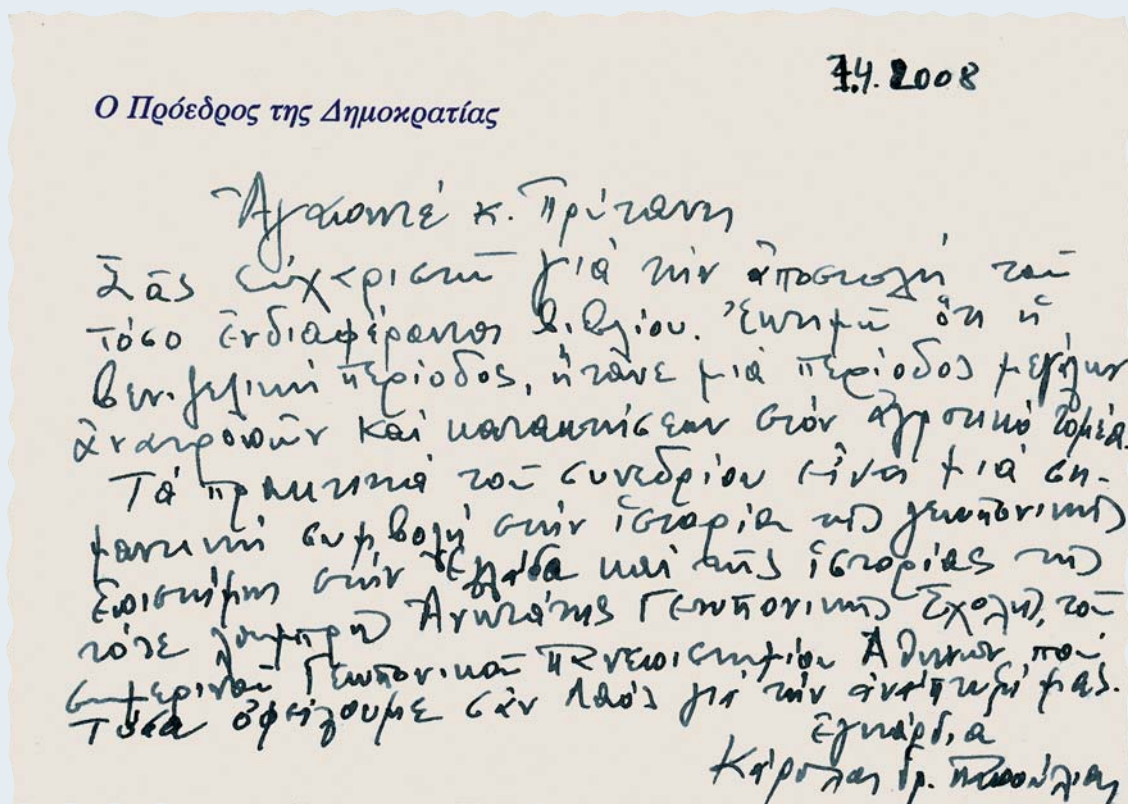 7.4.2008
Ο Πρόεδρος της Δημοκρατίας
Ἀγαπητέ κ. Πρύτανη
Σᾶς εὐχαριστῶ γιά τήν ἀποστολή τοῦ
τόσο ἐνδιαφέροντος βιβλίου. Ἐκτιμῶ ὅτι ἡ
βενιζελική περίοδος, ἤτανε μιά περίοδος μεγάλων
ἀνατροπῶν καί κατακτήσεων στόν ἀγροτικό τομέα.
Τά πρακτικά τοῦ συνεδρίου εἶναι μιά ση-
μαντική συμβολή στήν ἱστορία τῆς γεωπονικῆς
ἐπιστήμης στήν Ἑλλάδα καί τῆς ἱστορίας τῆς
τότε λαμπρῆς Ἀνωτάτης Γεωπονικῆς Σχολῆς, τοῦ
σημερινοῦ Γεωπονικοῦ Πανεπιστημίου Ἀθηνῶν πού
τόσα ὀφείλουμε σάν λαός γιά τήν ἀνάπτυξή μας.
Ἐγκάρδια
Κάρολος Γρ. Παπούλιας